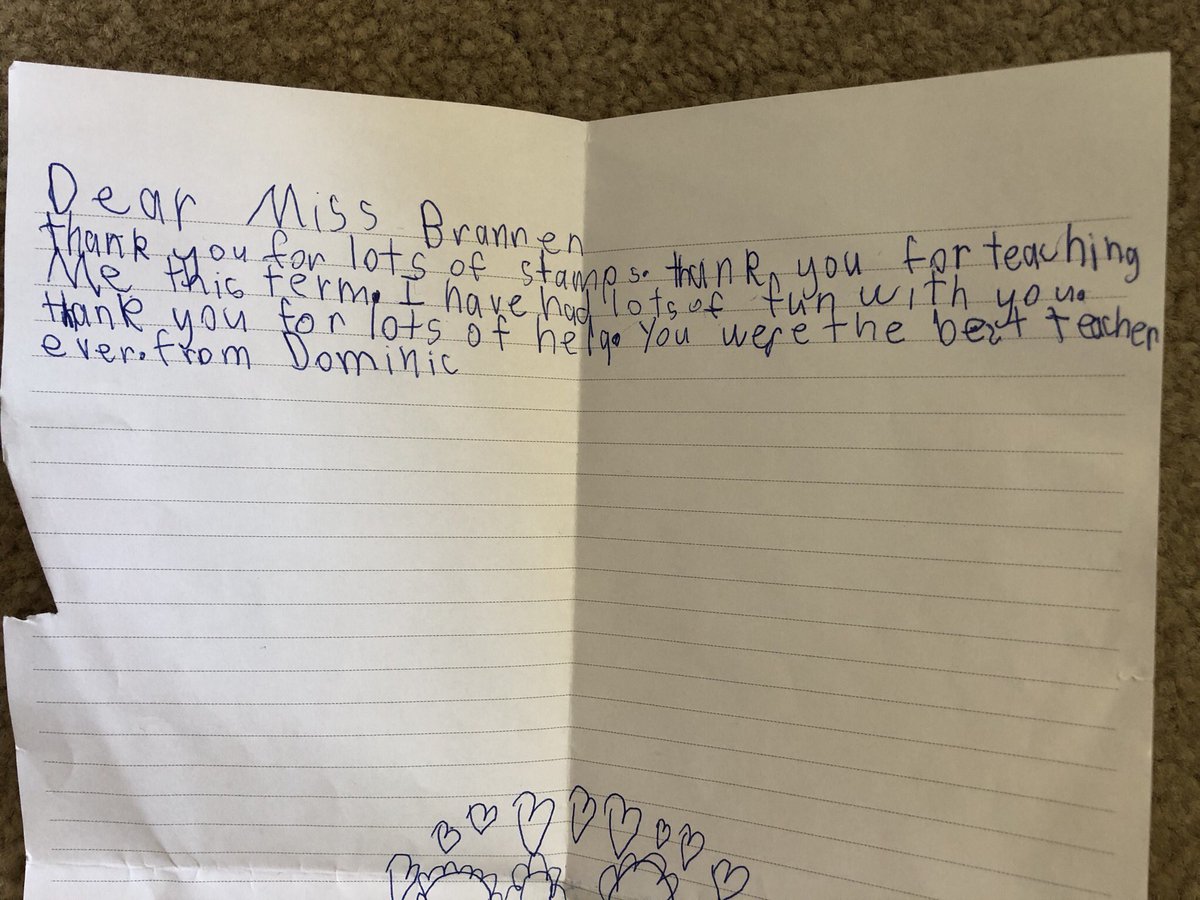 Dear Miss Brannen
thank you for lots of stamps. thank you for teaching
Me this term. I have had lots of fun with you.
thank you for lots of help. You were the best teacher
ever. from Dominic